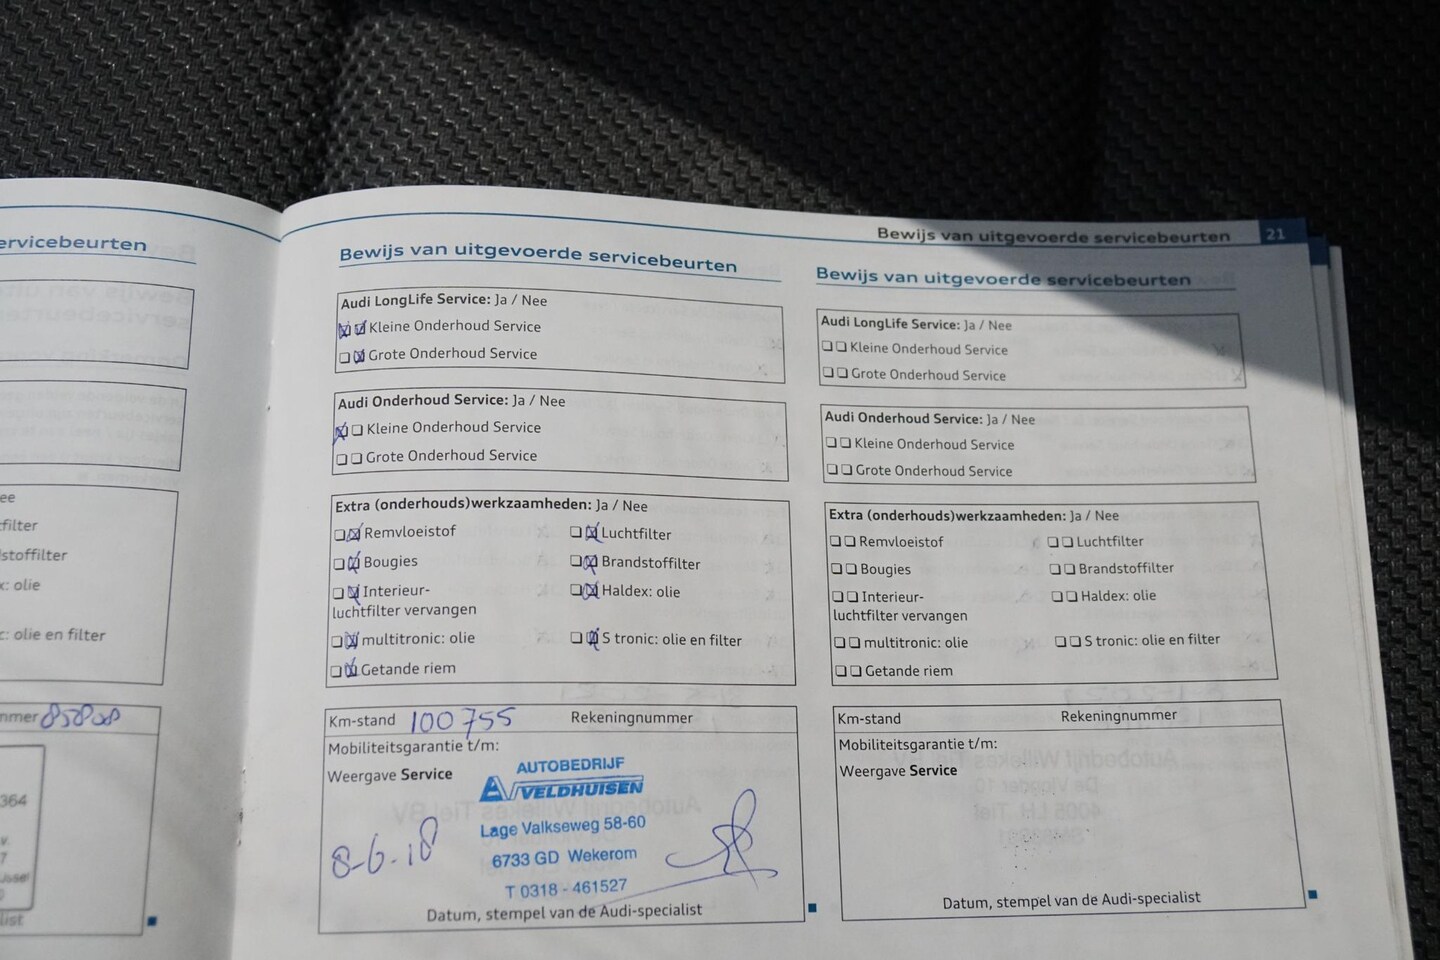 ervicebeurten
ee
filter
stoffilter
x: olie
c: olie en filter
mmer 85808
364
v.
7
list
Bewijs van uitgevoerde servicebeurten 21
Bewijs van uitgevoerde servicebeurten
Audi LongLife Service: Ja / Nee
Kleine Onderhoud Service
Grote Onderhoud Service
Audi Onderhoud Service: Ja / Nee
Kleine Onderhoud Service
Grote Onderhoud Service
Extra (onderhouds)werkzaamheden: Ja / Nee
Remvloeistof Luchtfilter
Bougies Brandstoffilter
Interieur- Haldex: olie
luchtfilter vervangen
multitronic: olie S tronic: olie en filter
Getande riem
Km-stand 100755 Rekeningnummer
Mobiliteitsgarantie t/m:
Weergave Service
AUTOBEDRIJF
VELDHUISEN
Lage Valkseweg 58-60
6733 GD Wekerom
T 0318 - 461527
8-6-18
Datum, stempel van de Audi-specialist
Bewijs van uitgevoerde servicebeurten
Audi LongLife Service: Ja / Nee
Kleine Onderhoud Service
Grote Onderhoud Service
Audi Onderhoud Service: Ja / Nee
Kleine Onderhoud Service
Grote Onderhoud Service
Extra (onderhouds)werkzaamheden: Ja / Nee
Remvloeistof Luchtfilter
Bougies Brandstoffilter
Interieur- Haldex: olie
luchtfilter vervangen
multitronic: olie S tronic: olie en filter
Getande riem
Km-stand Rekeningnummer
Mobiliteitsgarantie t/m:
Weergave Service
Datum, stempel van de Audi-specialist